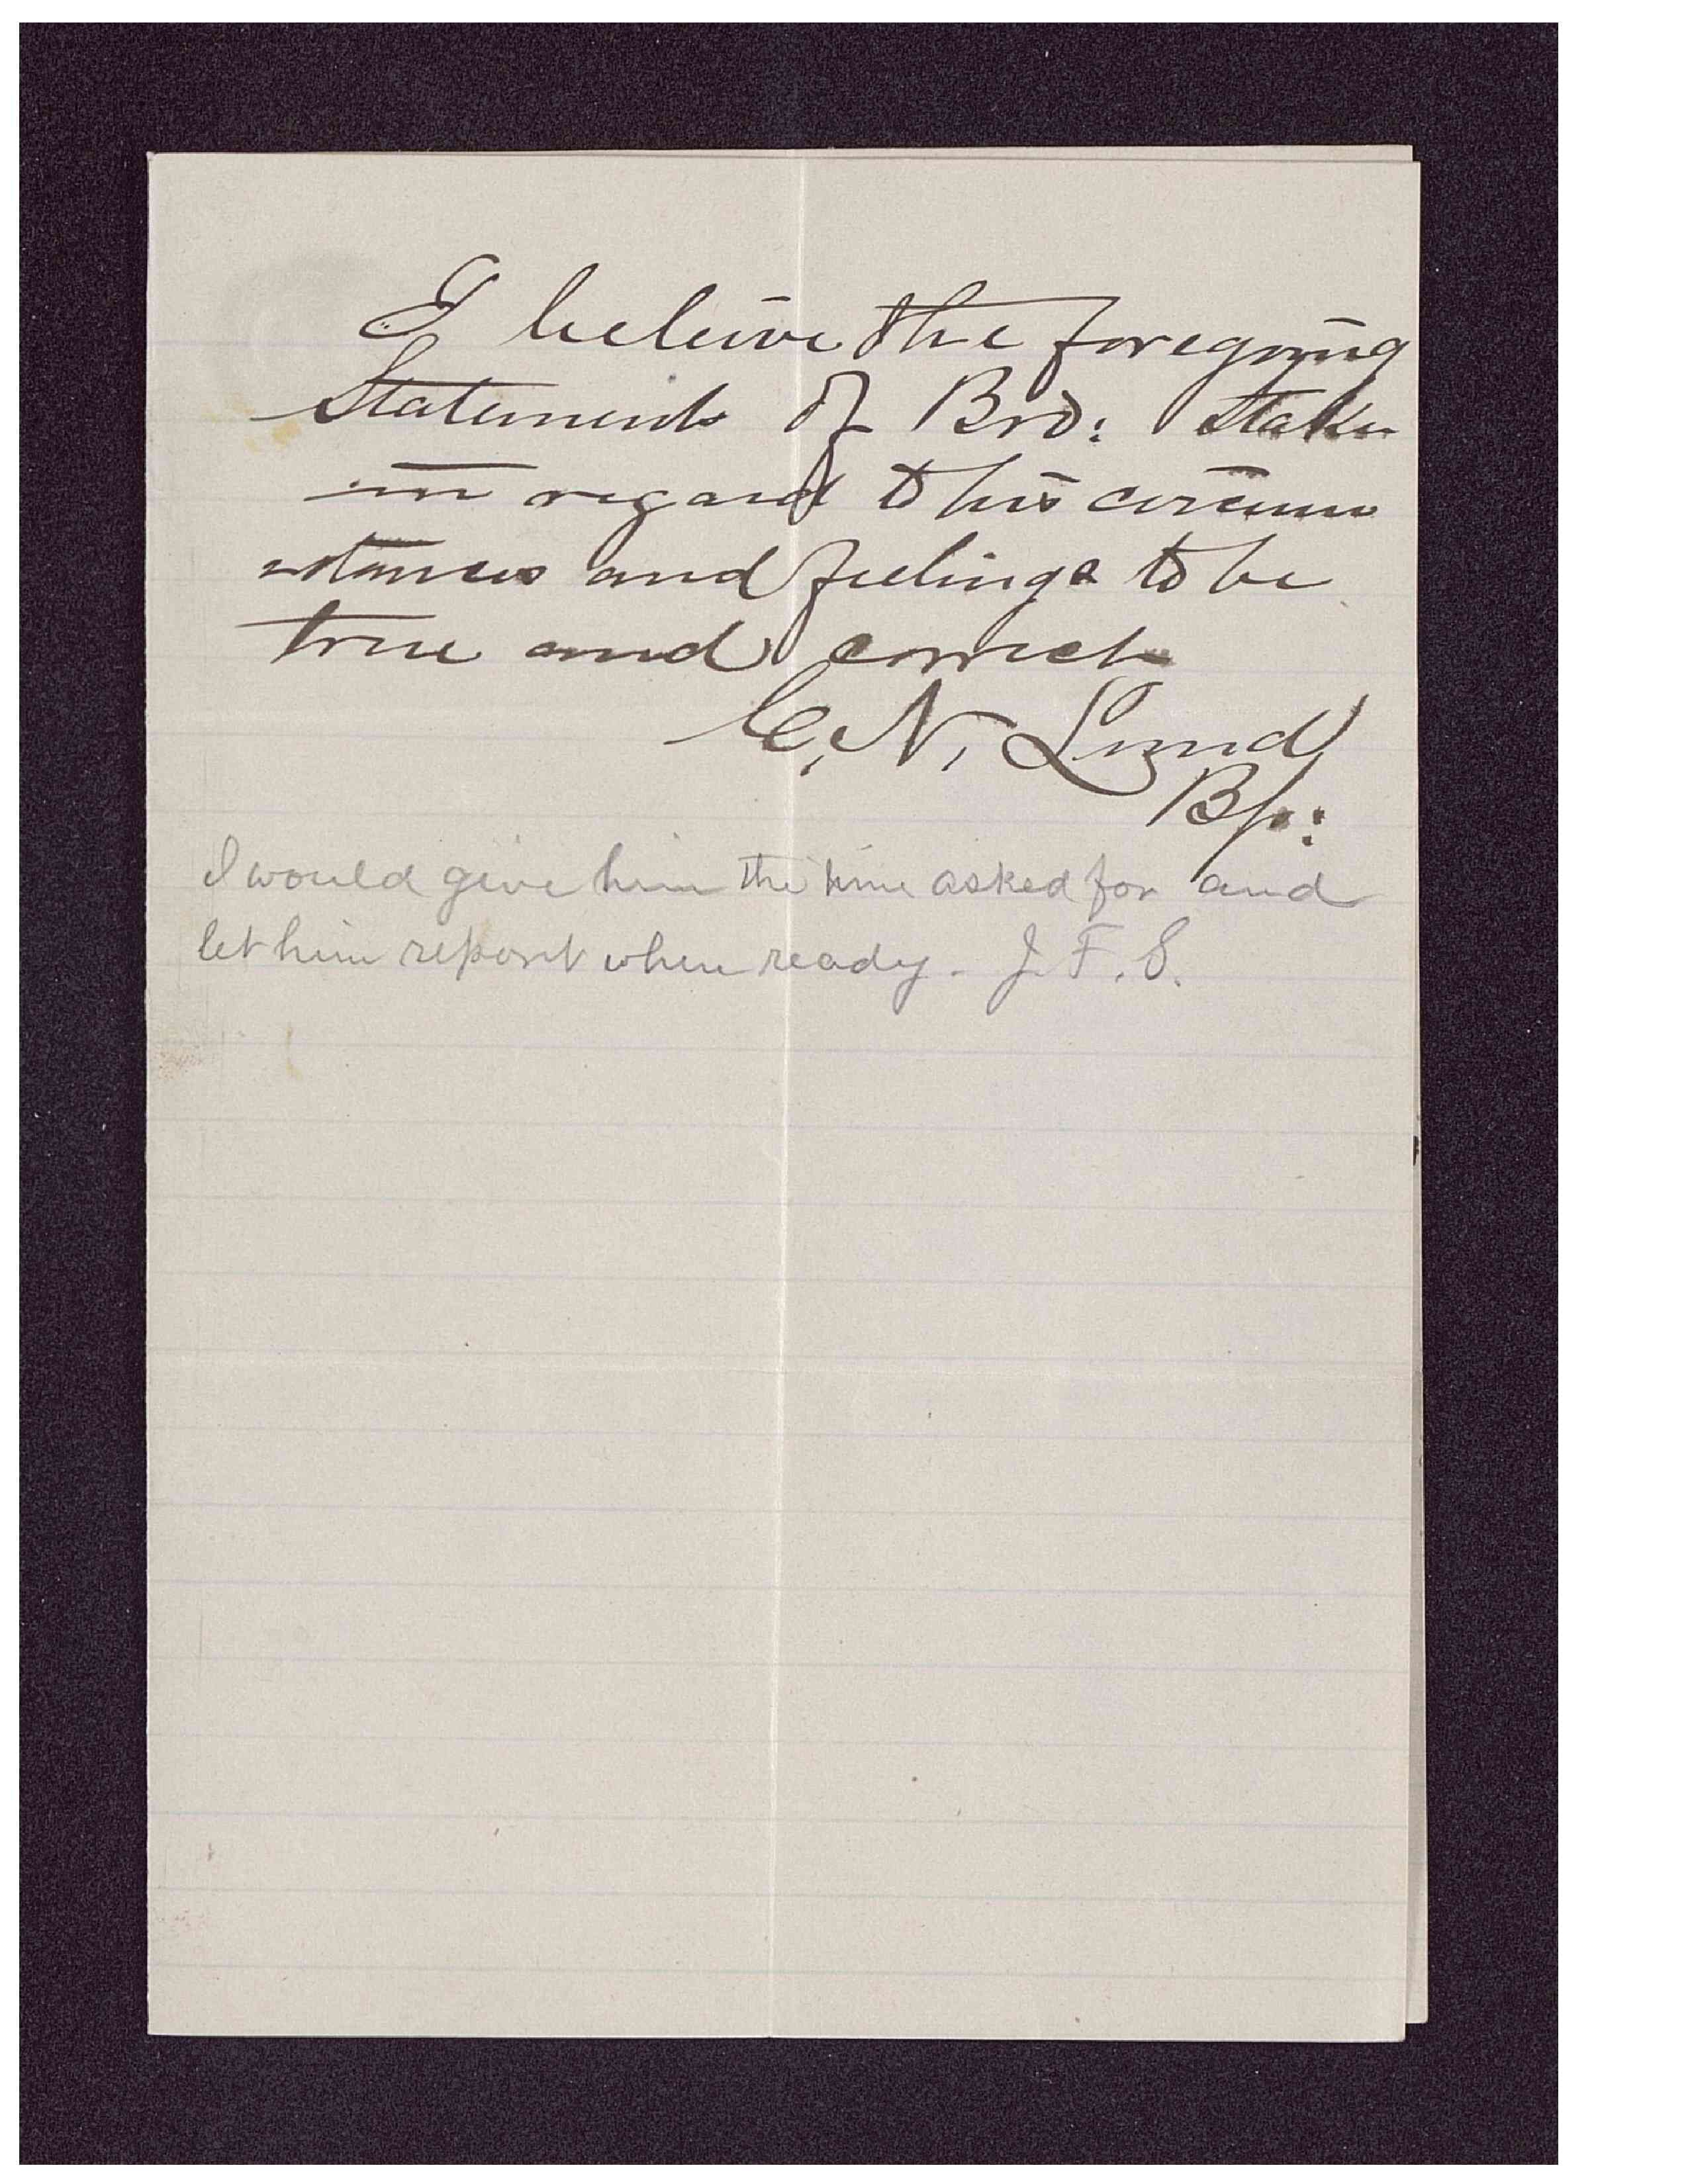 I beleive the foregoing
Statements of Bro: Staker
in regard to his circum
stances and feelings to be
true and correct
C. N. Lund
Bp:
I would give him the time asked for and
let him report when ready. J. F. S.